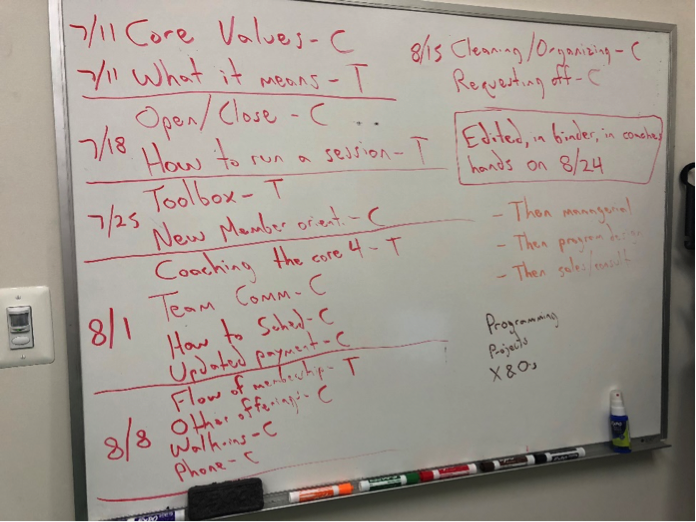 7/11 Core Values - C
7/11 What it means - T
Open/Close - C
7/18
How to run a session - T
Toolbox - T
7/25
New Member orient. - C
Coaching the core 4 - T
Team Comm - C
8/1
How to Sched - C
Updated payment - C
Flow of membership - T
Other offerings - C
8/8
Walk-ins - C
Phone - C
8/15 Cleaning/Organizing - C
Requesting off - C
Edited, in binder, in coaches
hands on 8/24
- Then managerial
- Then program design
- Then sales/consult
Programming
Projects
X & Os